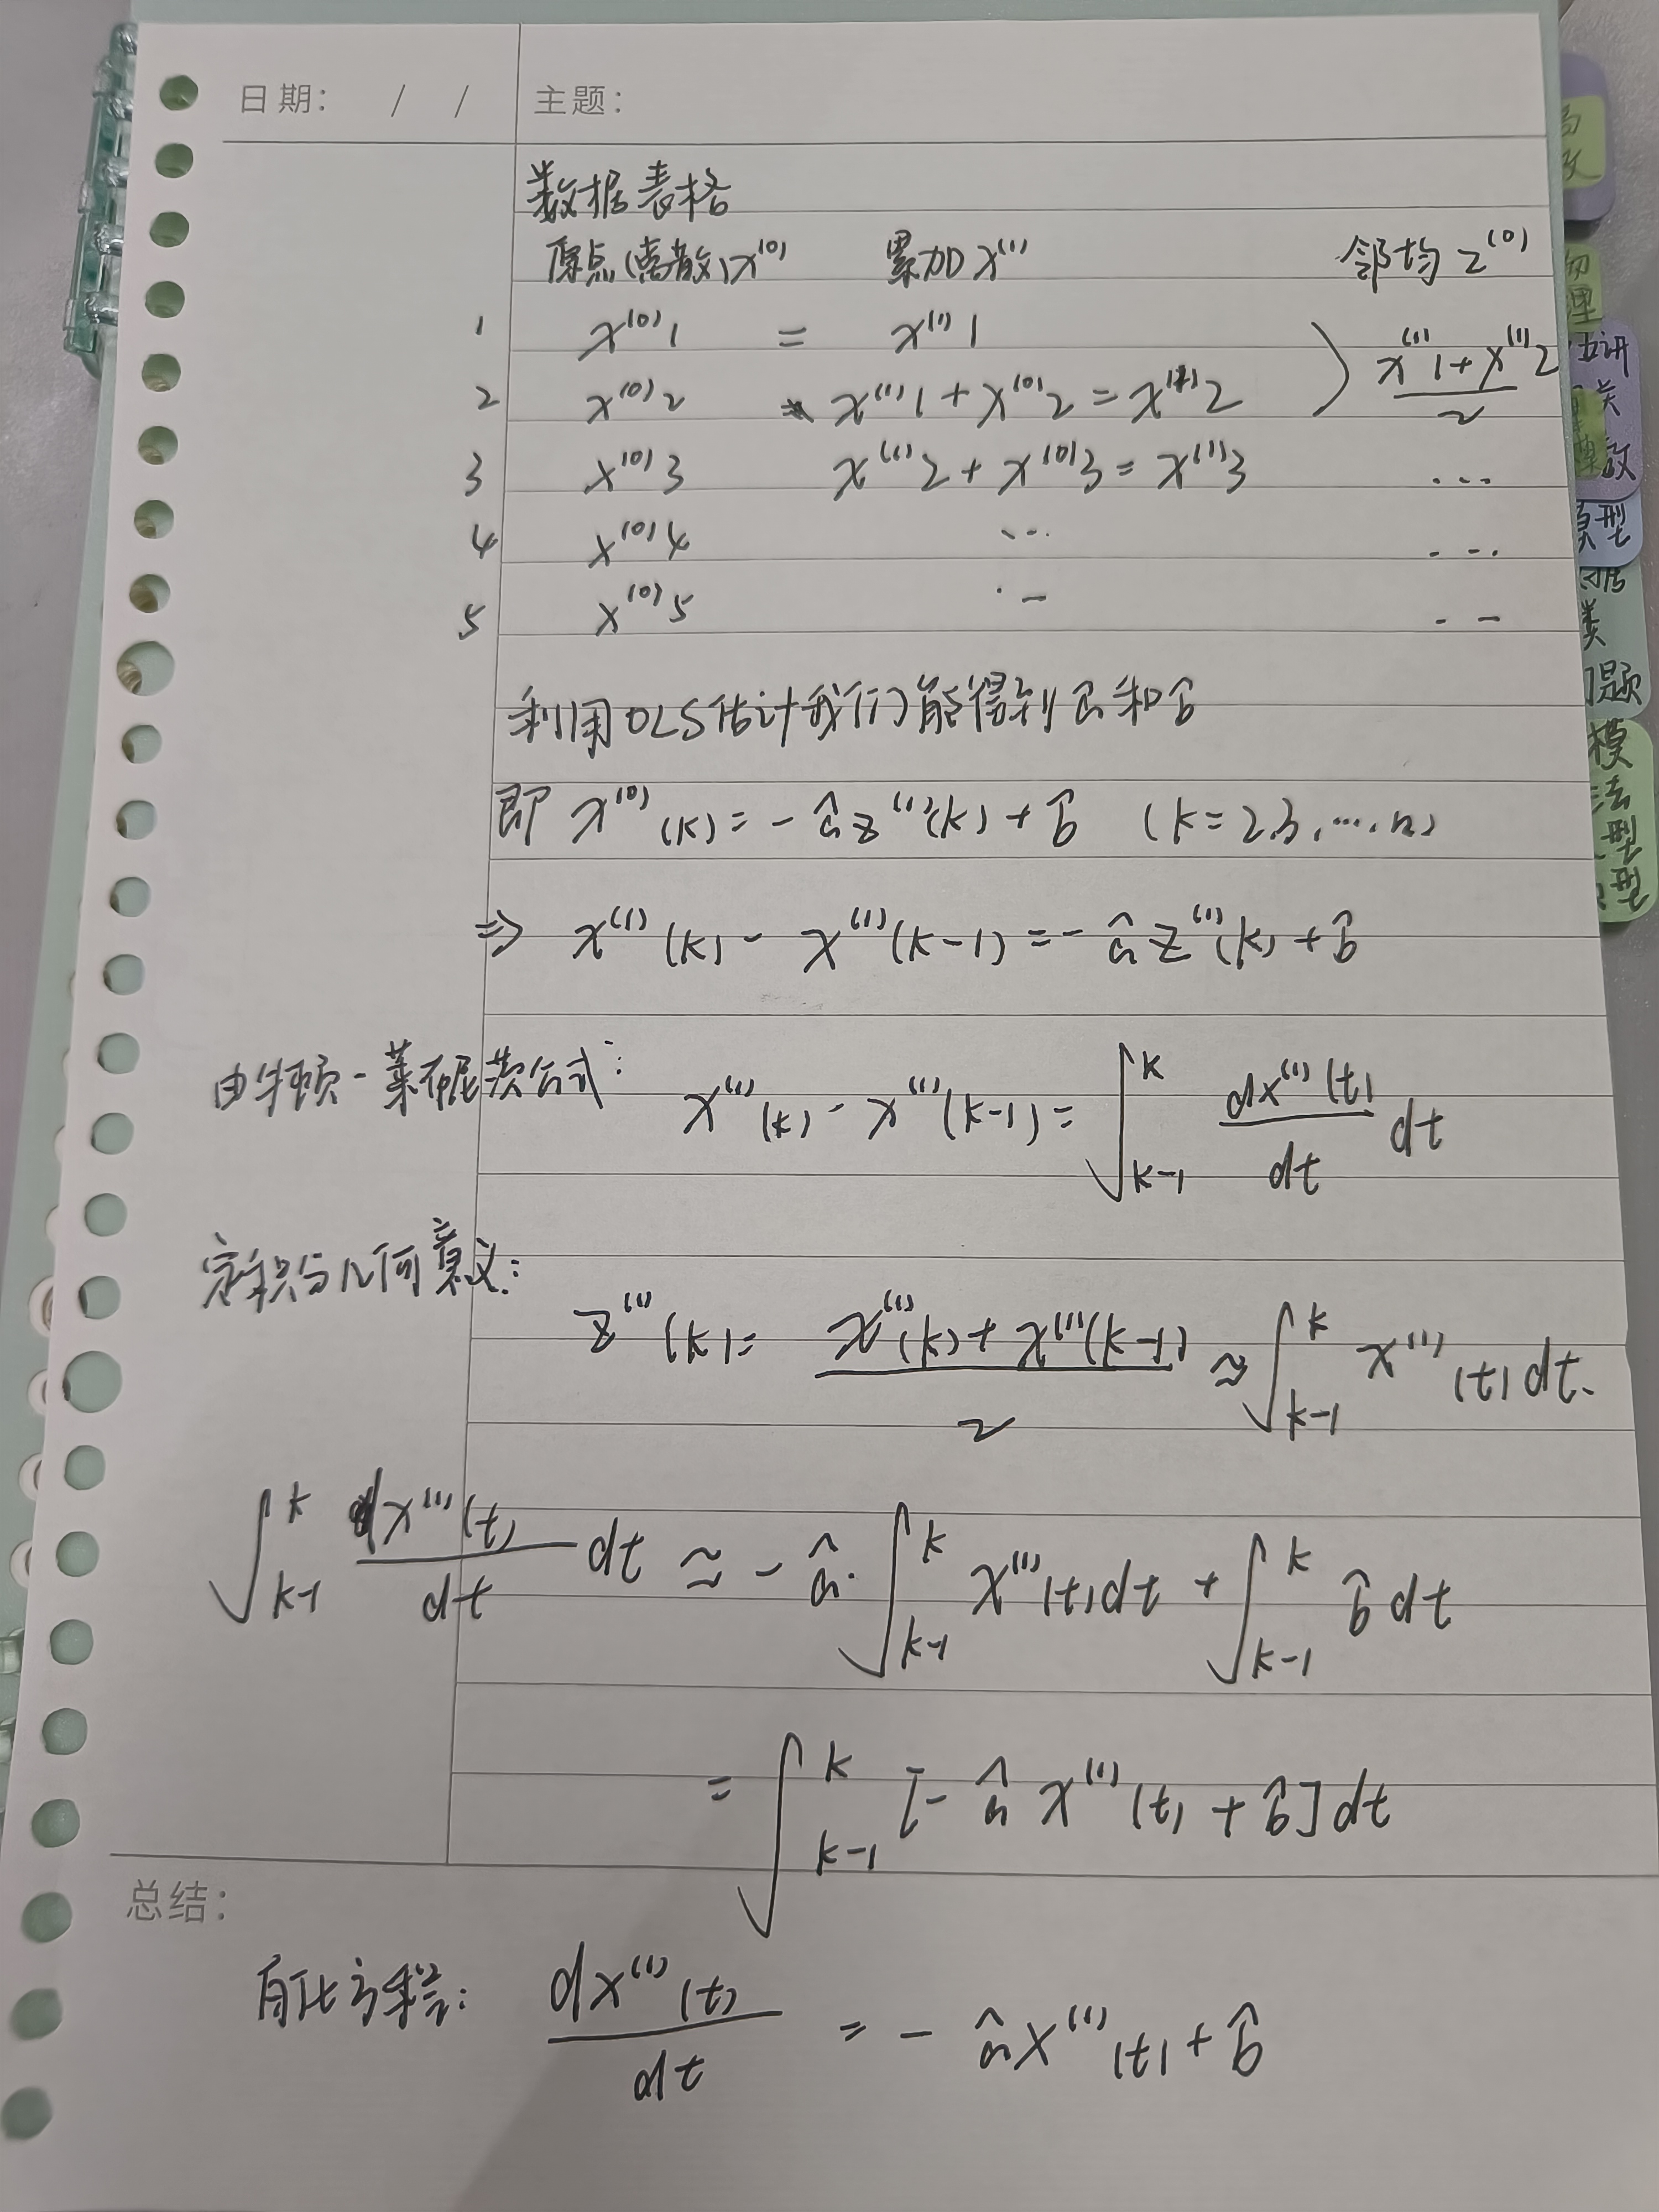 日期: / / 主题:
数据表格
原点(离散)x⁽⁰⁾ 累加x⁽¹⁾ 邻均z⁽⁰⁾
1 x⁽⁰⁾1 = x⁽¹⁾1
2 x⁽⁰⁾2 x⁽¹⁾1+x⁽⁰⁾2=x⁽¹⁾2 ) (x⁽¹⁾1+x⁽¹⁾2)/2
3 x⁽⁰⁾3 x⁽¹⁾2+x⁽⁰⁾3=x⁽¹⁾3 ...
4 x⁽⁰⁾4 ... ...
5 x⁽⁰⁾5
利用OLS估计我们能得到â和b̂
即 x⁽⁰⁾(k)=-âz⁽¹⁾(k)+b̂ (k=2,3,...,n)
⇒ x⁽¹⁾(k)-x⁽¹⁾(k-1)=-âz⁽¹⁾(k)+b̂
由牛顿-莱布尼茨公式: x⁽¹⁾(k)-x⁽¹⁾(k-1)=∫_{k-1}^{k} dx⁽¹⁾(t)/dt dt
定积分几何意义:
z⁽¹⁾(k)=(x⁽¹⁾(k)+x⁽¹⁾(k-1))/2≈∫_{k-1}^{k} x⁽¹⁾(t)dt.
∫_{k-1}^{k} dx⁽¹⁾(t)/dt dt≈-â·∫_{k-1}^{k} x⁽¹⁾(t)dt+∫_{k-1}^{k} b̂dt
=∫_{k-1}^{k} [-âx⁽¹⁾(t)+b̂]dt
总结:
白化方程: dx⁽¹⁾(t)/dt=-âx⁽¹⁾(t)+b̂
理
五讲
关
数
模型
类
问题
模
法
型
型